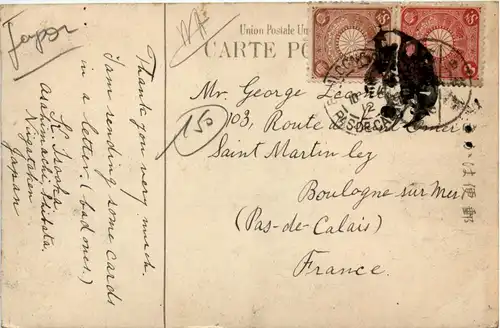 Japon
Union Postale Un
CARTE PO
Thank you very much.
I am sending some cards
in a letter. (bad ones.)
K. Isooka
Shibata
Niigataken
Japan
150
Mr. George
303, Route de
Saint Martin-lez
Boulogne sur Mer
(Pas-de-Calais)
France.
便郵